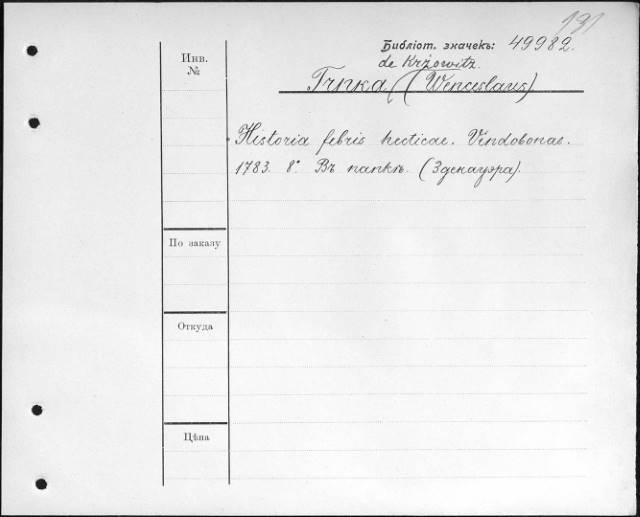 191
Библіот. значекъ: 49982.
de Kržowitz.
Trnka (Wenceslaus)
Инв.
№
Historia febris hecticae. Vindobonae.
1783. 8°. Въ папкѣ. (Зденауэра).
По заказу
Откуда
Цѣна